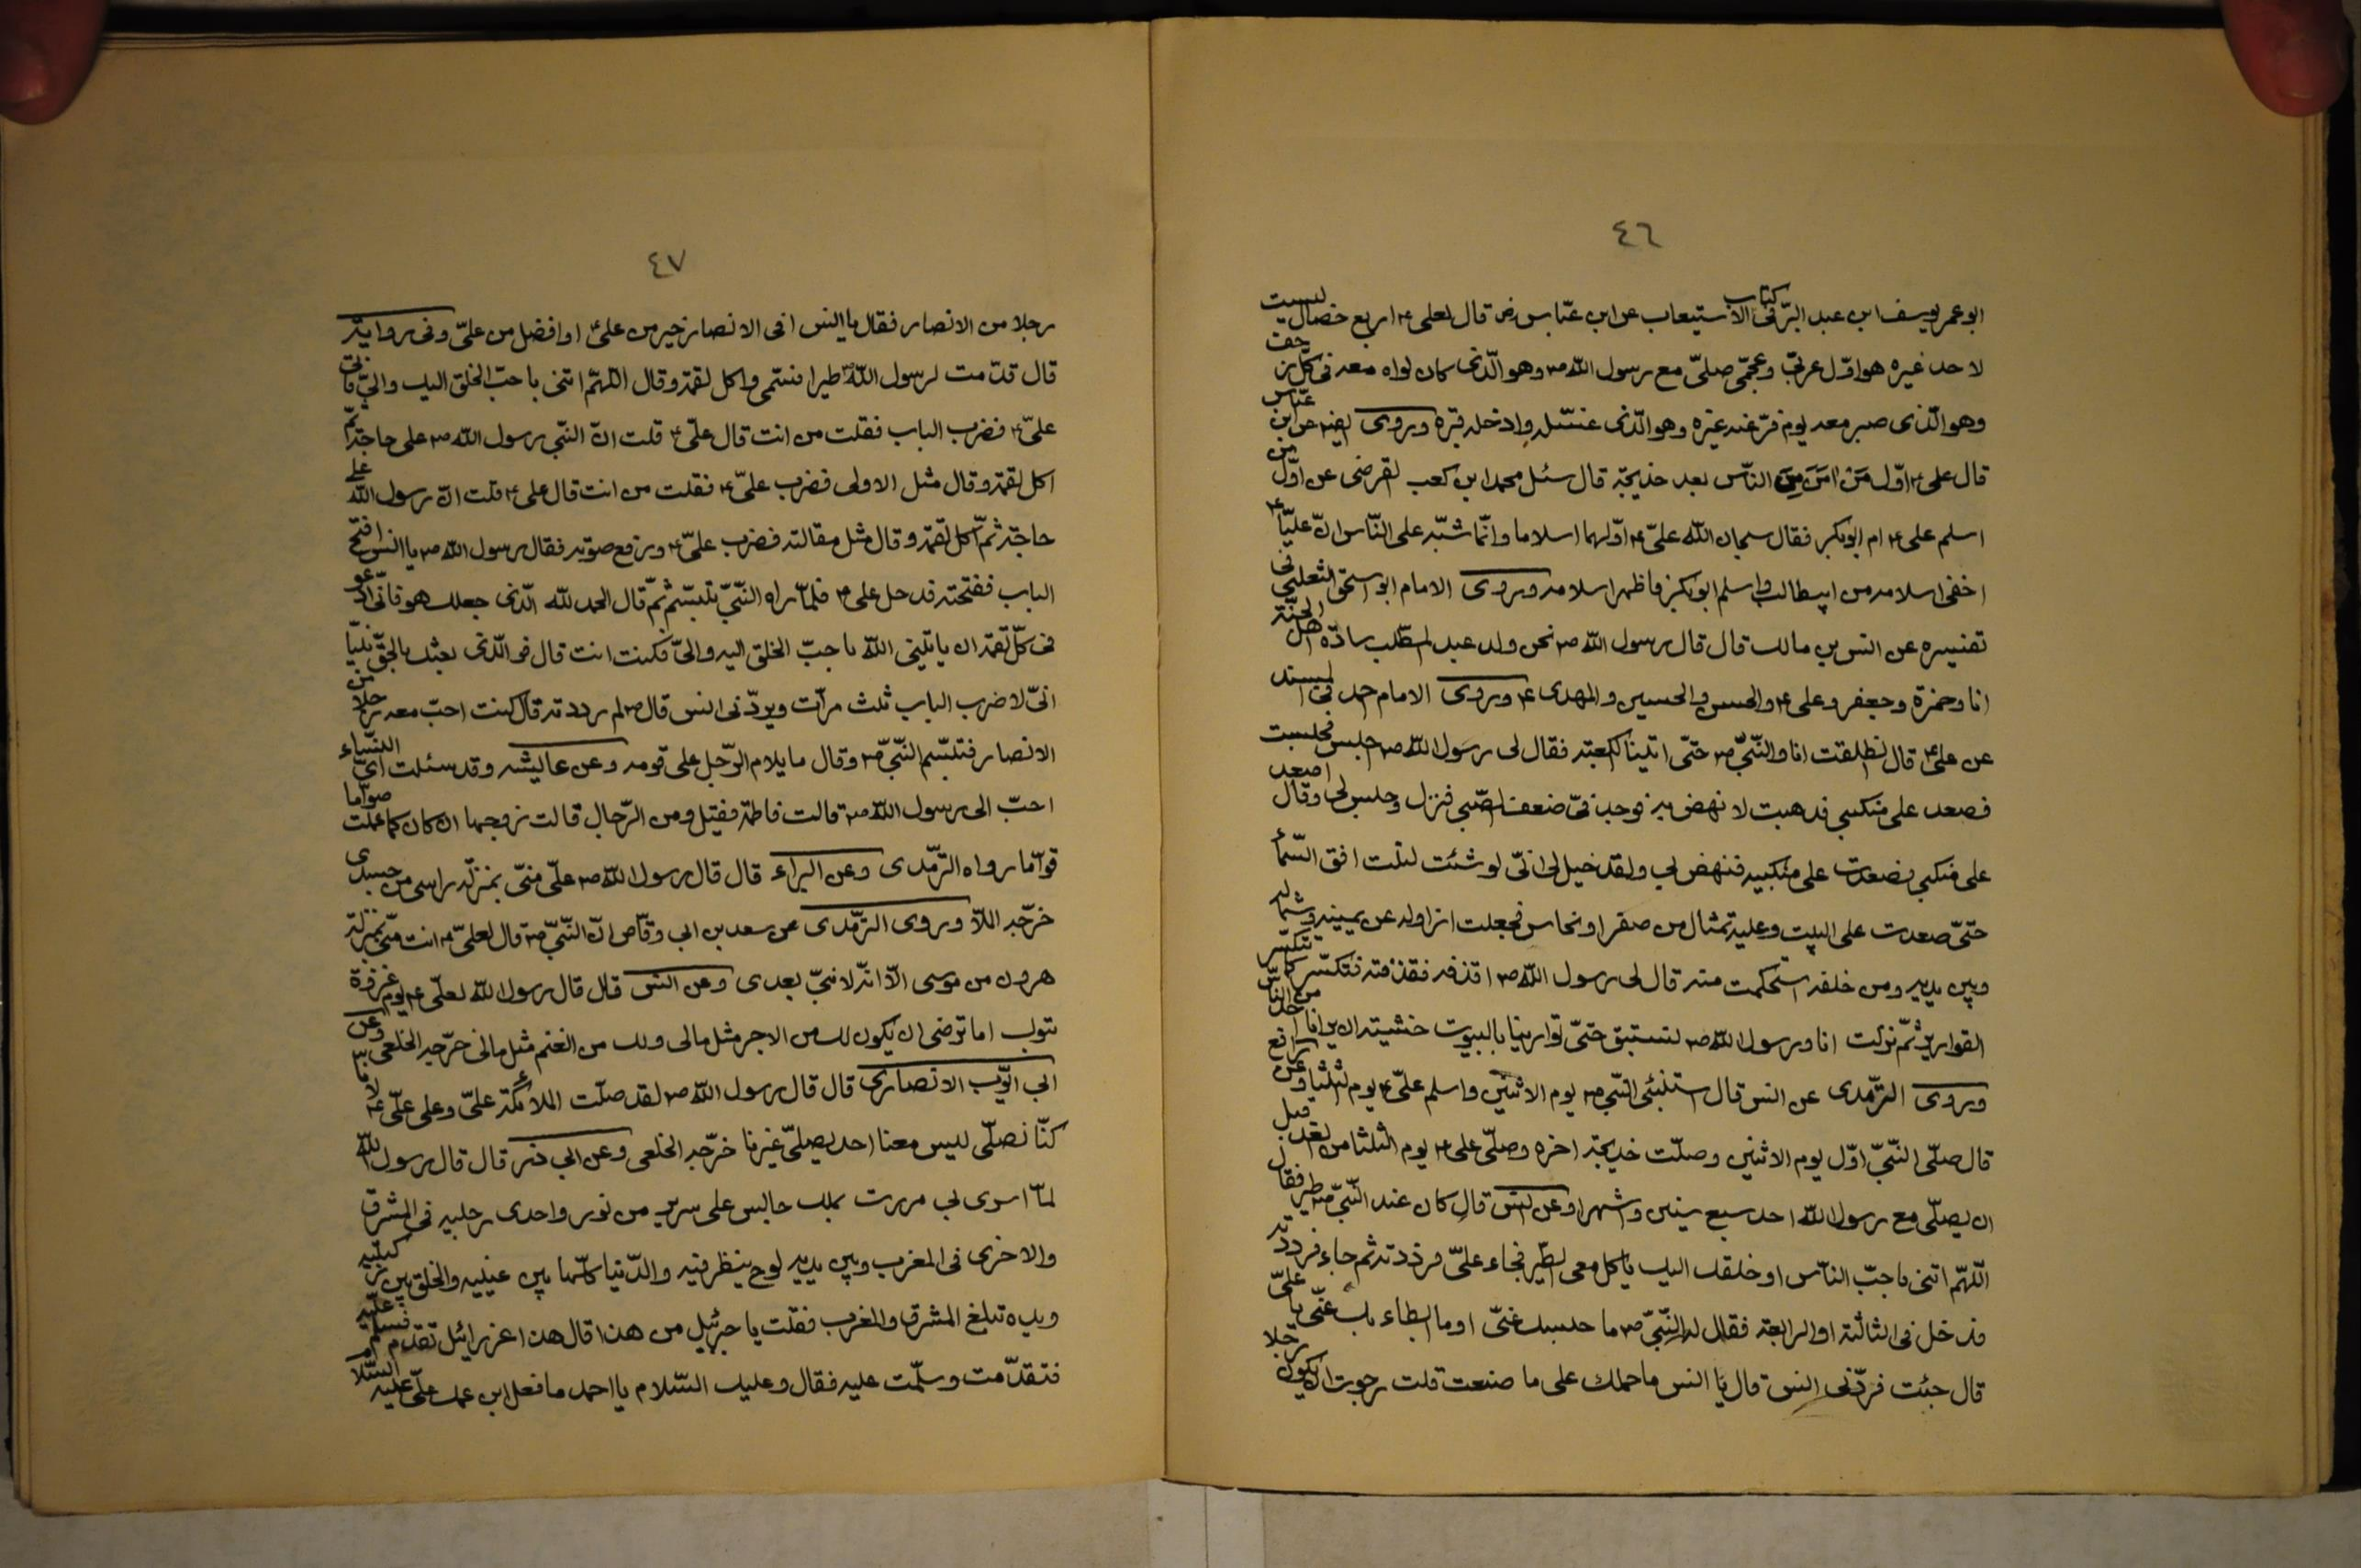 ٤٦
ابو عمر يوسف ابن عبد البرّ فى كتاب الاستيعاب عن ابن عبّاس رض قال لعلى ع اربع خصال ليست
لاحد غيره هو اوّل عربىّ وعجمىّ صلىّ مع رسول اللّه ص وهو الّذى كان لواه معه فى كلّ زحف
وهو الّذى صبر معه يوم فرّ عنه غيره وهو الّذى غسّله وادخله قبره وروى ايضا عن ابن عبّاس
قال على ع اوّل من امن من النّاس بعد خديجة قال سئل محمد ابن كعب القرضى عن اوّل من
اسلم على ع ام ابوبكر فقال سبحان اللّه علىّ ع اوّلهما اسلاما وانّما شبّه على النّاس انّ عليّا ع
اخفى اسلامه من ابيطالب واسلم ابوبكر فاظهر اسلامه وروى الامام ابو اسحق الثعلبى فى
تفسيره عن انس بن مالك قال قال رسول اللّه ص نحن ولد عبد المطّلب سادة اهل الجنّة
انا وحمزة وجعفر وعلى ع والحسن والحسين والمهدى ع وروى الامام احمد فى المسند
عن علىّ ع قال انطلقت انا والنّبىّ ص حتّى اتينا الكعبة فقال لى رسول اللّه ص اجلس فجلست
فصعد على منكبى فذهبت لانهض به فوجد فىّ ضعفا فنزل وجلس لى وقال اصعد
على منكبى فصعدت على منكبيه فنهض بى ولقد خيل لى انّى لو شئت لنلت افق السّماء
حتّى صعدت على البيت وعليه تمثال من صفر او نحاس فجعلت ازاوله عن يمينه وشماله
وبين يديه ومن خلفه استحكمت منه قال لى رسول اللّه ص اقذفه فقذفته فتكسّر كما تتكسّر
القوارير ثمّ نزلت انا ورسول اللّه ص نستبق حتّى توارينا بالبيوت خشية ان يرانا احد من النّاس
وروى التّرمّدى عن انس قال استنبئ النّبى ص يوم الاثنين واسلم علىّ ع يوم الثلثا وعن رافع
قال صلّى النّبىّ اوّل يوم الاثنين وصلّت خديجة اخره وصلّى على ع يوم الثلثا من الغد قبل
ان يصلّى مع رسول اللّه احد سبع سنين واشهرا وعن انس قال كان عند النّبىّ ص طير فقال
اللّهمّ اتنى باحبّ النّاس او خلقك اليك ياكل معى الطّير فجاء علىّ فرددته ثم جاء فرددته
فدخل فى الثالثة او الرابعة فقال له النّبىّ ص ما حبسك عنّى او ما ابطاء بك عنّى يا علىّ
قال جئت فردّنى انس قال يا انس ما حملك على ما صنعت قلت رجوت ان يكون رجلا
٤٧
رجلا من الانصار فقال يا انس افى الانصار خير من علىّ او افضل من علىّ وفى رواية
قال قدّمت لرسول اللّه ص طيرا فسمّى واكل لقمة وقال اللّهمّ اتنى باحبّ الخلق اليك والىّ فاتى
علىّ ع فضرب الباب فقلت من انت قال علىّ ع قلت انّ النّبى رسول اللّه ص على حاجة ثمّ
اكل لقمة وقال مثل الاولى فضرب علىّ ع فقلت من انت قال على ع قلت انّ رسول اللّه على
حاجة ثمّ اكل لقمة وقال مثل مقالته فضرب علىّ ع ورفع صوته فقال رسول اللّه ص يا انس افتح
الباب ففتحته فدخل على ع فلمّا راه النّبىّ تبسّم ثمّ قال الحمد للّه الّذى جعلك هو فانّى ادعو
فى كلّ لقمة ان ياتينى اللّه باحبّ الخلق اليه والىّ فكنت انت قال فوالّذى بعثك بالحقّ نبيّا
انّى لاضرب الباب ثلث مرّات ويردّنى انس قال ص لم رددته قال كنت احبّ معه رجلا من
الانصار فتبسّم النّبىّ ص وقال ما يلام الرّجل على قومه وعن عايشه وقد سئلت اىّ النّساء
احبّ الى رسول اللّه ص قالت فاطمة فقيل ومن الرّجال قالت زوجها ان كان كما علمت صوّاما
قوّاما رواه التّرمّدى وعن البراء قال قال رسول اللّه ص علىّ منّى بمنزلة راسى من جسدى
خرّجه الملّا وروى التّرمّدى عن سعد بن ابى وقّاص انّ النّبىّ ص قال لعلىّ ع انت منّى بمنزلة
هرون من موسى الّا انّه لا نبىّ بعدى وعن انس قال قال رسول اللّه لعلىّ ع يوم غزوة
تبوك اما ترضى ان يكون لك من الاجر مثل مالى ولك من الغنم مثل مالى خرّجه الخلعى وعن
ابى ايّوب الانصارى قال قال رسول اللّه ص لقد صلّت الملائكة علىّ وعلى علىّ ع لانّا
كنّا نصلّى ليس معنا احد يصلّى غيرنا خرّجه الخلعى وعن ابى ذر قال قال رسول اللّه
لمّا اسرى بى مررت بملك جالس على سرير من نور واحدى رجليه فى المشرق
والاخرى فى المغرب وبين يديه لوح ينظر فيه والدّنيا كلّها بين عينيه والخلق بين ركبتيه
ويده تبلغ المشرق والمغرب فقلت يا جبرئيل من هذا قال هذا عزرائيل تقدم فسلّم عليه
فتقدّمت وسلّمت عليه فقال وعليك السّلام يا احمد ما فعل ابن عمك علىّ عليه السّلا